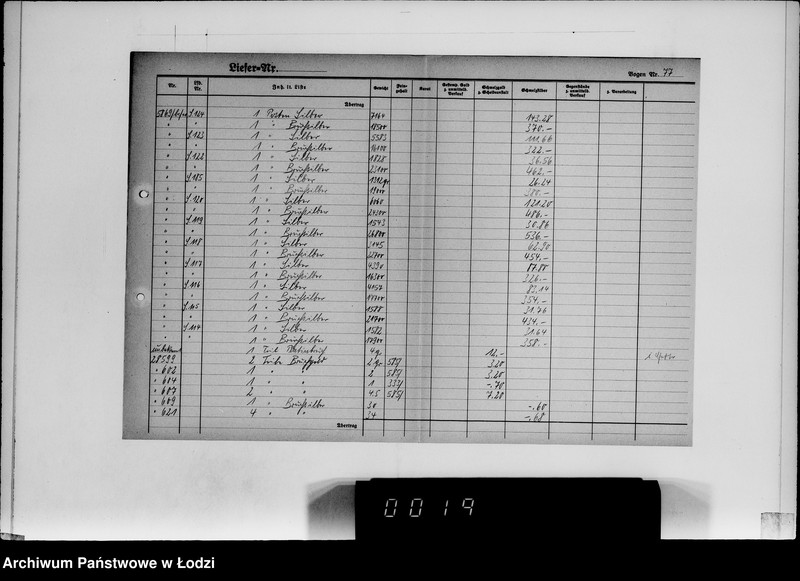 Liefer=Nr.
Bogen Nr. 77
Nr. Lfd. Nr. Inh. lt. Liste Gewicht Fein-gehalt Karat Gebrauch. Gold z. unmittelb. Verkauf Schmelzgold z. Scheideanstalt Schmelzsilber z. unmittelb. Verkauf z. Verarbeitung
Übertrag
S. 124 1 Posten Silber 7164 143.28
" " 1 " Bruchsilber 18500 370.–
" S. 123 1 " Silber 5583 111.66
" " 1 " Bruchsilber 16100 322.–
" S. 122 1 " Silber 1828 36.56
" " 1 " Bruchsilber 23100 462.–
" 1 " Silber 26.24
" " 1 " Bruchsilber 380.–
" S. 120 1 " Silber 6060 121.20
" " 1 " Bruchsilber 24300 486.–
" S. 119 1 " Silber 1543 30.86
" " 1 " Bruchsilber 26800 536.–
" S. 118 1 " Silber 3145 62.90
" " 1 " Bruchsilber 22700 454.–
" S. 117 1 " Silber 87.80
" " 1 " Bruchsilber 16300 326.–
" S. 116 1 " Silber 4157 83.14
" " 1 " Bruchsilber 17700 354.–
" 1 " Silber 1588 31.76
" " 1 " Bruchsilber 21700 434.–
" S. 114 1 " Silber 1582 31.64
" " 1 " Bruchsilber 17900 358.–
unbekannt 1 Teil 4 gr. 12.–
28599 2 Teile Bruchgold 2 gr. 585/ 3.20
" 602 1 " " 2 585/ 3.20
" 604 1 " " 1 333/ –.70
" 607 2 " " 4.5 585/ 7.20
" 609 1 " Bruchsilber 30 –.60
" 621 4 " " 34 –.68
Übertrag
0019
Archiwum Państwowe w Łodzi